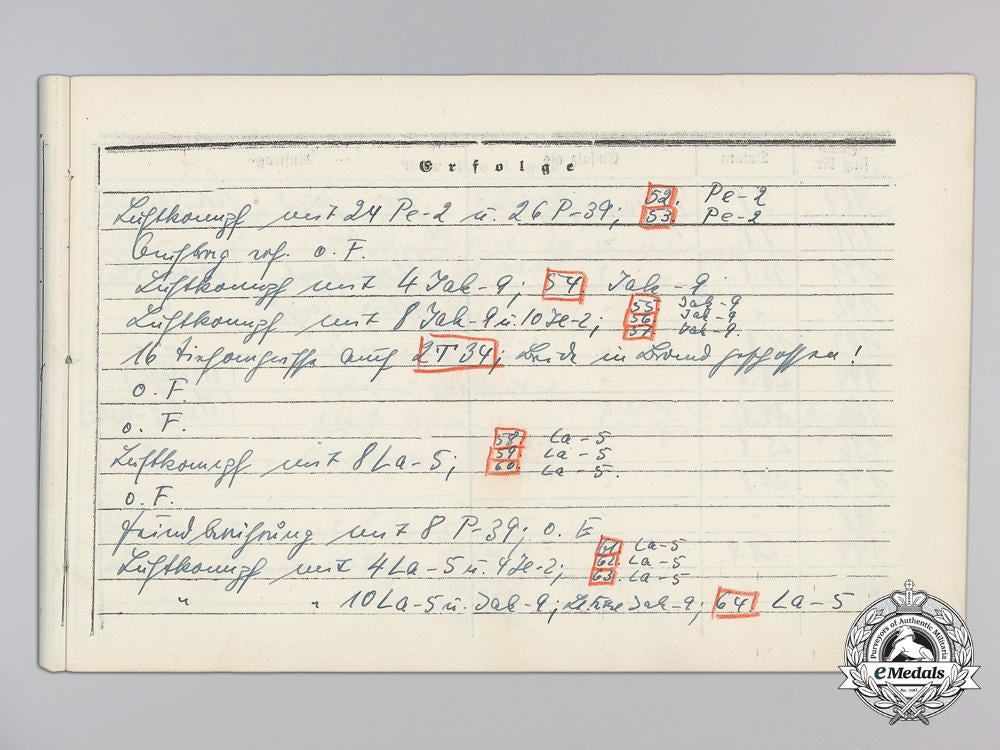 Erfolge
Luftkampf mit 24 Pe-2 u. 26 P-39; 52. Pe-2
53. Pe-2
Auftrag o. F.
Luftkampf mit 4 Jak-9; 54. Jak-9
Luftkampf mit 8 Jak-9 u. 10 Je-2; 55. Jak-9
56. Jak-9
57. Jak-9.
16 Tiefangriffe auf 2 T 34; Beide in Brand geschossen!
o. F.
o. F.
Luftkampf mit 8 La-5; 58. La-5
59. La-5
60. La-5.
o. F.
Feindberührung mit 8 P-39; o. E
Luftkampf mit 4 La-5 u. 4 Je-2; 61. La-5
62. La-5
63. La-5
" " 10 La-5 u. Jak-9; Jak-9; 64. La-5
Purveyors of Authentic Militaria
eMedals